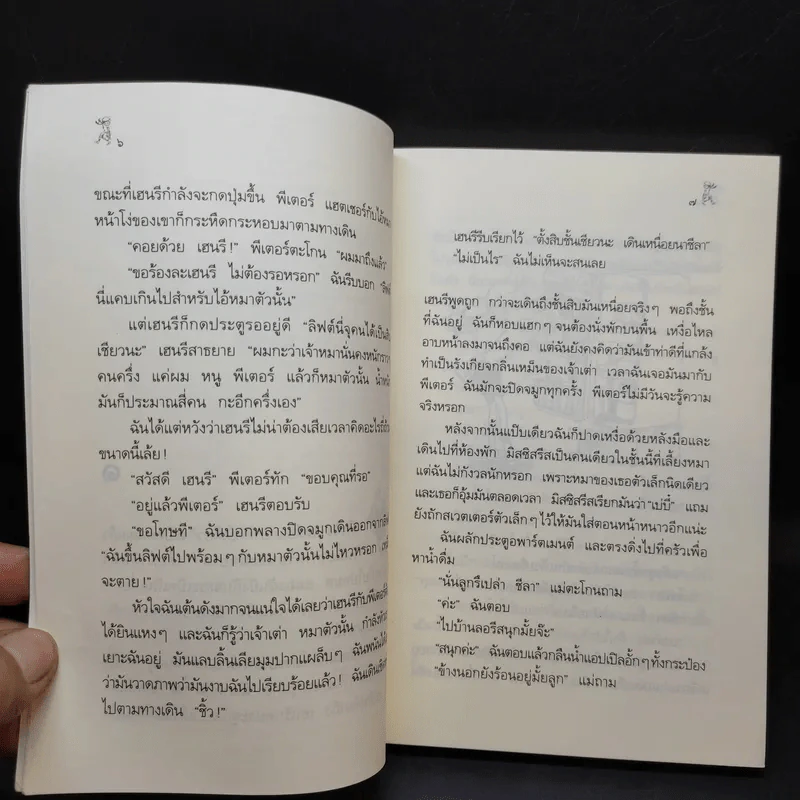 ๖
ขณะที่เฮนรีกำลังจะกดปุ่มขึ้น พีเตอร์ แฮตเชอร์กับไอ้หมา
หน้าโง่ของเขาก็กระหืดกระหอบมาตามทางเดิน
“คอยด้วย เฮนรี !” พีเตอร์ตะโกน “ผมมาถึงแล้ว”
“ขอร้องละเฮนรี ไม่ต้องรอหรอก” ฉันรีบบอก
นี่แคบเกินไปสำหรับไอ้หมาตัวนั้น”
แต่เฮนรีก็กดประตูรออยู่ดี “ลิฟต์นี่จุคนได้เป็น
เชียวนะ” เฮนรีสาธยาย “ผมกะว่าเจ้าหมานั่นคงหนัก
คนครึ่ง แค่ผม หนู พีเตอร์ แล้วก็หมาตัวนั้น
มันก็ประมาณสี่คน กะอีกครึ่งเอง”
ฉันได้แต่หวังว่าเฮนรีไม่น่าต้องเสียเวลาคิดอะไร
ขนาดนี้เล้ย !
“สวัสดี เฮนรี” พีเตอร์ทัก “ขอบคุณที่รอ”
“อยู่แล้วพีเตอร์” เฮนรีตอบรับ
“ขอโทษที” ฉันบอกพลางปิดจมูกเดินออกจาก
“ฉันขึ้นลิฟต์ไปพร้อมๆ กับหมาตัวนั้นไม่ไหวหรอก
จะตาย !”
หัวใจฉันเต้นดังมากจนแน่ใจได้เลยว่าเฮนรีกับพีเตอร์
ได้ยินแหงๆ และฉันก็รู้ว่าเจ้าเต่า หมาตัวนั้น
เยาะฉันอยู่ มันแลบลิ้นเลียมุมปากแผล็บๆ ฉันพนันได้
ว่ามันวาดภาพว่ามันงาบฉันไปเรียบร้อยแล้ว ! ฉันเดิน
ไปตามทางเดิน “ชิ้ว !”
๗
เฮนรีรีบเรียกไว้ “ตั้งสิบชั้นเชียวนะ เดินเหนื่อยนาชีลา”
“ไม่เป็นไร” ฉันไม่เห็นจะสนเลย
เฮนรีพูดถูก กว่าจะเดินถึงชั้นสิบมันเหนื่อยจริงๆ พอถึงชั้น
ที่ฉันอยู่ ฉันก็หอบแฮกๆ จนต้องนั่งพักบนพื้น เหงื่อไหล
อาบหน้าลงมาจนถึงคอ แต่ฉันยังคงคิดว่ามันเข้าท่าดีที่แกล้ง
ทำเป็นรังเกียจกลิ่นเหม็นของเจ้าเต่า เวลาฉันเจอมันมากับ
พีเตอร์ ฉันมักจะปิดจมูกทุกครั้ง พีเตอร์ไม่มีวันจะรู้ความ
จริงหรอก
หลังจากนั้นแป๊บเดียวฉันก็ปาดเหงื่อด้วยหลังมือและ
เดินไปที่ห้องพัก มิสซิสรีสเป็นคนเดียวในชั้นนี้ที่เลี้ยงหมา
แต่ฉันไม่กังวลนักหรอก เพราะหมาของเธอตัวเล็กนิดเดียว
และเธอก็อุ้มมันตลอดเวลา มิสซิสรีสเรียกมันว่า“เบ๊บี้” แถม
ยังถักสเวตเตอร์ตัวเล็กๆ ไว้ให้มันใส่ตอนหน้าหนาวอีกแน่ะ
ฉันผลักประตูอพาร์ตเมนต์ และตรงดิ่งไปที่ครัวเพื่อ
หาน้ำดื่ม
“นั่นลูกรึเปล่า ชีลา” แม่ตะโกนถาม
“ค่ะ” ฉันตอบ
“ไปบ้านลอรีสนุกมั้ยจ๊ะ”
“สนุกค่ะ” ฉันตอบแล้วกลืนน้ำแอปเปิลอั้กๆ ทั้งกระป๋อง
“ข้างนอกยังร้อนอยู่มั้ยลูก” แม่ถาม